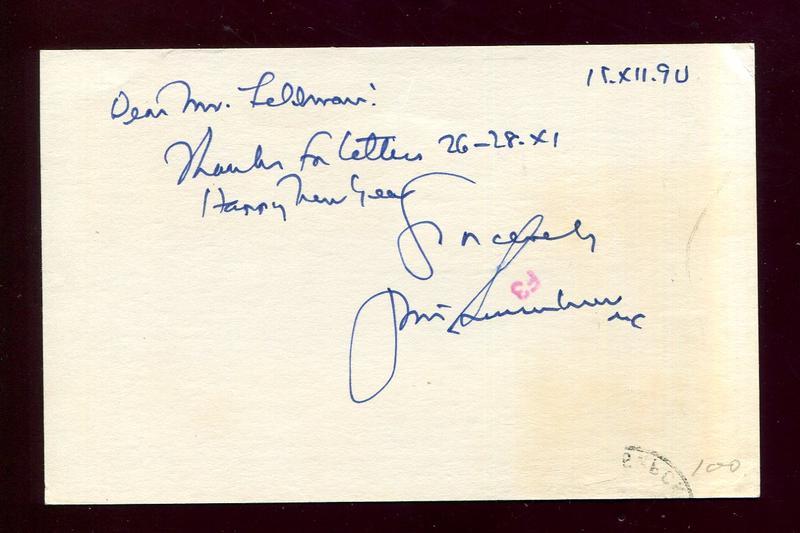 15.XII.90
Dear Mr. Feldman!
Thanks for letters 26-28.XI
Happy New Year
Sincerely
F3
100